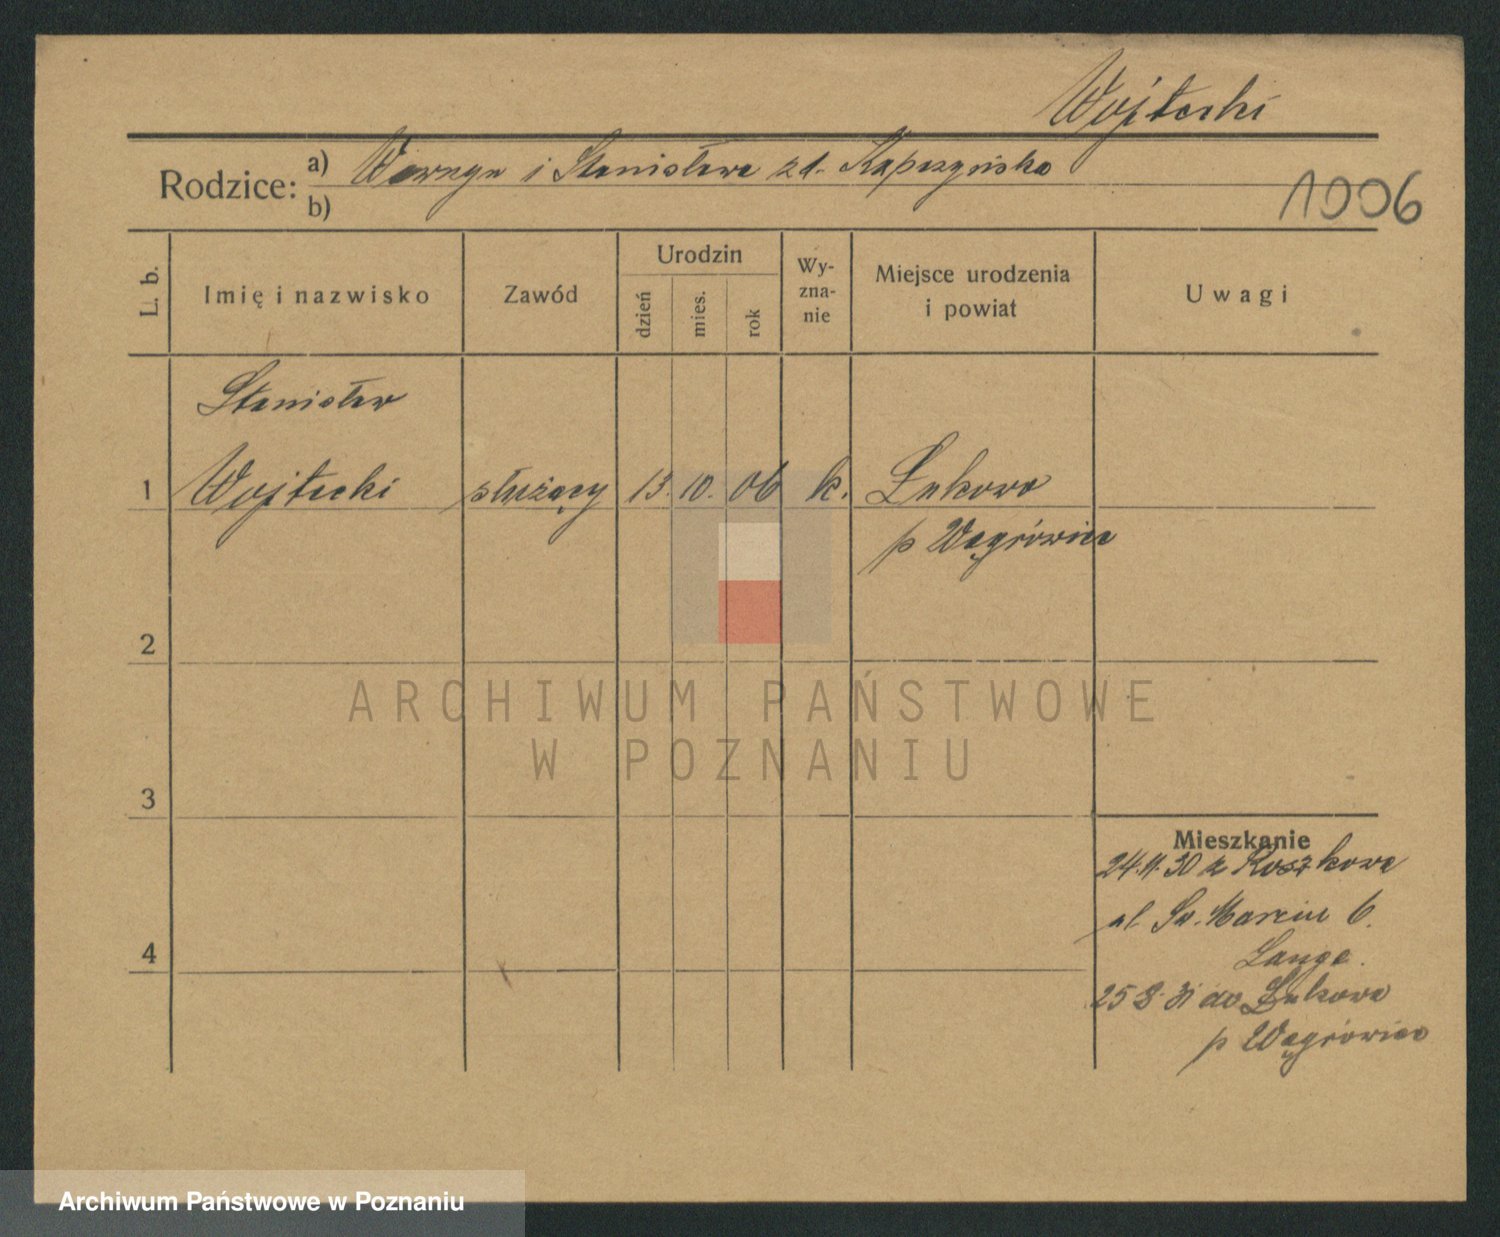 Wojtecki
Rodzice: a) Wawrzyn i Stanisława zd. Kapczyńska
b)
1906
L. b.
Imię i nazwisko
Zawód
Urodzin
dzień
mies.
rok
Wy-
zna-
nie
Miejsce urodzenia
i powiat
Uwagi
Stanisław
1 Wojtecki służący 13. 10. 06 k. Łukowo
p Wągrówiec
2
ARCHIWUM PAŃSTWOWE
W POZNANIU
3
Mieszkanie
24.11.30 z Roszkowa
ul. Św. Marcin 6.
Lange.
4
25 8. 31 do Łukowa
p Wągrówiec
Archiwum Państwowe w Poznaniu